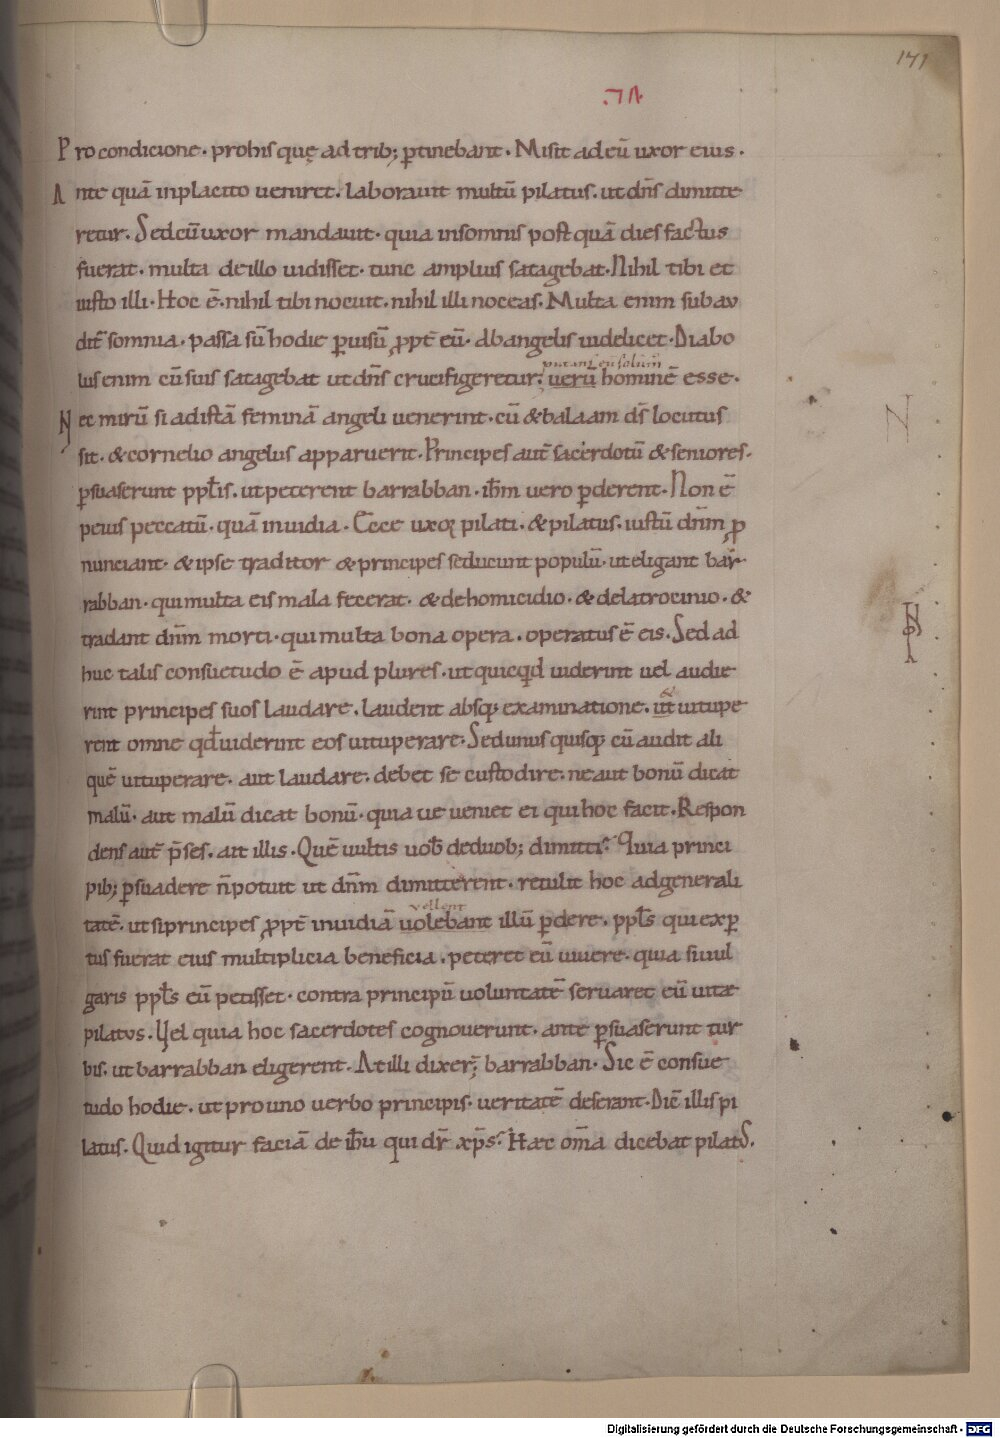 171
Pro condicione · pro his quę ad trib; ꝑtinebant · Misit ad eū uxor eius ·
Ante quā in placito ueniret · laborauit multū pilatus · ut dn̄s dimitte
retur · Sed cū uxor mandauit · quia in somnis post quā dies factus
fuerat · multa de illo uidisset · tunc amplius satagebat · Nihil tibi et
iusto illi · Hoc ē · nihil tibi nocuit · nihil illi noceas · Multa enim subau
dit̄ somnia · passa sū hodie ꝑ uisū ꝓpt̄ eū · Ab angelis uidelicet · Diabo
putans eū solum̄
lus enim cū suis satagebat ut dn̄s crucifigeretur · uerū hominē esse ·
Nec mirū si ad istā feminā angeli uenerint · cū & balaam dn̄s locutus
sit · & cornelio angelus apparuerit · Principes aut̄ sacerdotū & seniores ·
ꝑsuaserunt ppl̄is · ut peterent barrabban · ih̄m uero ꝑderent · Non ē
peius peccatū · quā inuidia · Ecce uxor pilati · & pilatus · iustū dn̄m ꝓ
nunciant · & ipse traditor & principes seducunt populū · ut eligant bar
rabban · qui multa eis mala fecerat · & de homicidio · & de latrocinio · &
tradant dn̄m morti · qui multa bona opera · operatus ē eis · Sed ad
huc talis consuetudo ē apud plures · ut quicq̄d uiderint uel audie
rint principes suos laudare · laudent absq; examinatione · ut uitupe
&
rent omne qd̄ uiderint eos uituperare · Sed unusquisq; cū audit ali
quē uituperare · aut laudare · debet se custodire · ne aut bonū dicat
malū · aut malū dicat bonū · quia ue ueniet ei qui hoc facit · Respon
dens aut̄ p̄ses · ait illis · Quē uultis uob̄ de duob; dimitti · Quia princi
pib; ꝑsuadere n̄ potuit ut dn̄m dimitterent · retulit hoc ad generali
vellent
tatē · ut si principes ꝓpt̄ inuidiā uolebant illū ꝑdere · ppl̄s qui exꝑ
tus fuerat eius multiplicia beneficia · peteret eū uiuere · quia si uul
garis ppl̄s eū petisset · contra principū uoluntatē seruaret eū uitæ
pilatus · Vel quia hoc sacerdotes cognouerunt · ante ꝑsuaserunt tur
bis · ut barrabban eligerent · At illi dixer̄ · barrabban · Sic ē consue
tudo hodie · ut pro uno uerbo principis · ueritatē deserant · Dic̄ illis pi
latus · Quid igitur faciā de ih̄u qui dr̄ xp̄s · Hæc om̄a dicebat pilatus ·
Digitalisierung gefördert durch die Deutsche Forschungsgemeinschaft - DFG